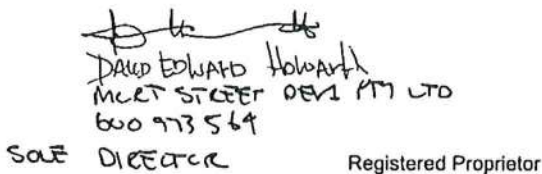 DAVID EDWARD HOWARTH
MORT STREET DEV1 PTY LTD
600 973 564
SOLE DIRECTOR
Registered Proprietor